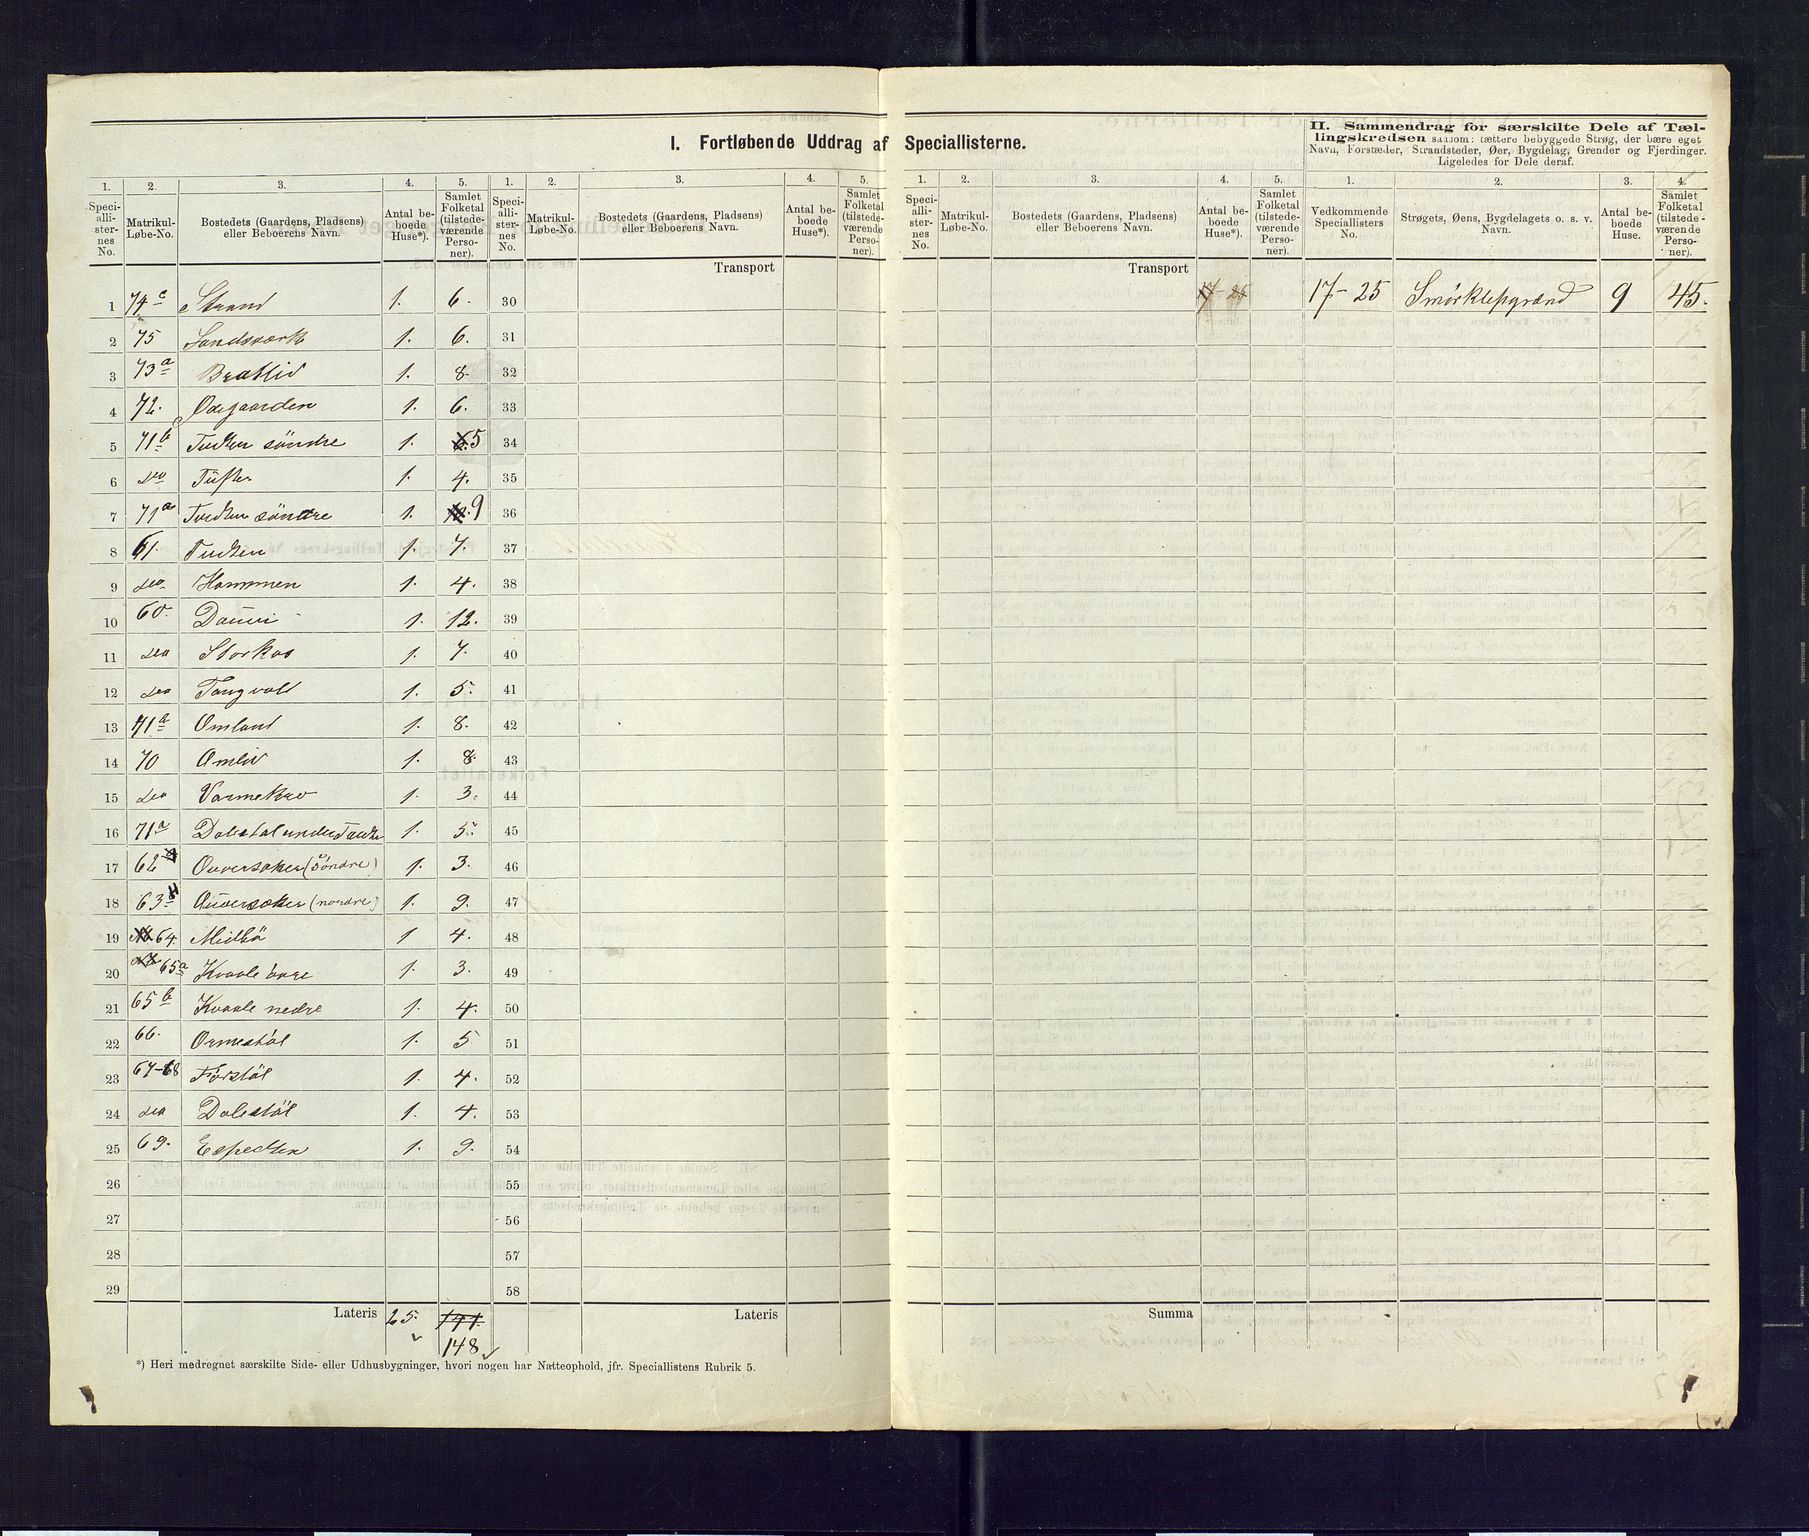 I. Fortløbende Uddrag af Speciallisterne.
II. Sammendrag for særskilte Dele af Tællingskredsen saasom: tættere bebyggede Strøg, der bære eget
Navn, Forstæder, Strandsteder, Øer, Bygdelag, Grender og Fjerdinger.
Ligeledes for Dele deraf.
1. 2. 3. 4. 5. 1. 2. 3. 4. 5. 1. 2. 3. 4. 5. 1. 2. 3. 4.
Speciallisternes No. Matrikul-Løbe-No. Bostedets (Gaardens, Pladsens) eller Beboerens Navn. Antal beboede Huse*). Samlet Folketal (tilstedeværende Personer).
Speciallisternes No. Matrikul-Løbe-No. Bostedets (Gaardens, Pladsens) eller Beboerens Navn. Antal beboede Huse*). Samlet Folketal (tilstedeværende Personer).
Speciallisternes No. Matrikul-Løbe-No. Bostedets (Gaardens, Pladsens) eller Beboerens Navn. Antal beboede Huse*). Samlet Folketal (tilstedeværende Personer).
Vedkommende Speciallisters No. Strøgets, Øens, Bygdelagets o. s. v. Navn. Antal beboede Huse. Samlet Folketal (tilstedeværende Personer).
Transport Transport
1 74 c Strand 1. 6. 30 17-25 17-25 Smörklepgrænd 9 45.
2 75 Landsværk 1. 6. 31
3 73 a Bratlid 1. 8. 32
4 72. Ödegaarden 1. 6. 33
5 71 b söndre 1. 6. 5 34
6 do Tufter 1. 4. 35
7 71 a söndre 1. 9 36
8 61. 1. 7. 37
9 do Hammen 1. 4. 38
10 60. 1. 12. 39
11 do Storkaas 1. 7. 40
12 do Tangvald 1. 5. 41
13 71 b Omland 1. 8. 42
14 70 Amlid 1. 8. 43
15 do 1. 3. 44
16 71 a Dalestøl under 1. 5. 45
17 62 (Söndre) 1. 3. 46
18 63 (nordre) 1. 9. 47
19 64. Midbö 1 4. 48
20 65 a Kvaale övre 1. 3. 49
21 65 b Kvaale nedre 1. 4. 50
22 66. Ormestöl 1. 5 51
23 67-68 1. 4. 52
24 do Dalestöl 1. 4. 53
25 69. 1. 9. 54
26 55
27 56
28 57
29 58
Lateris 25. 191. Lateris Summa
148
*) Heri medregnet særskilte Side- eller Udhusbygninger, hvori nogen har Natteophold, jfr. Speciallistens Rubrik 5.